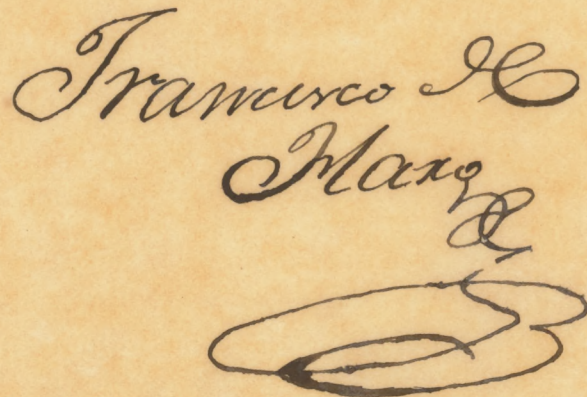 Francisco de
Marq